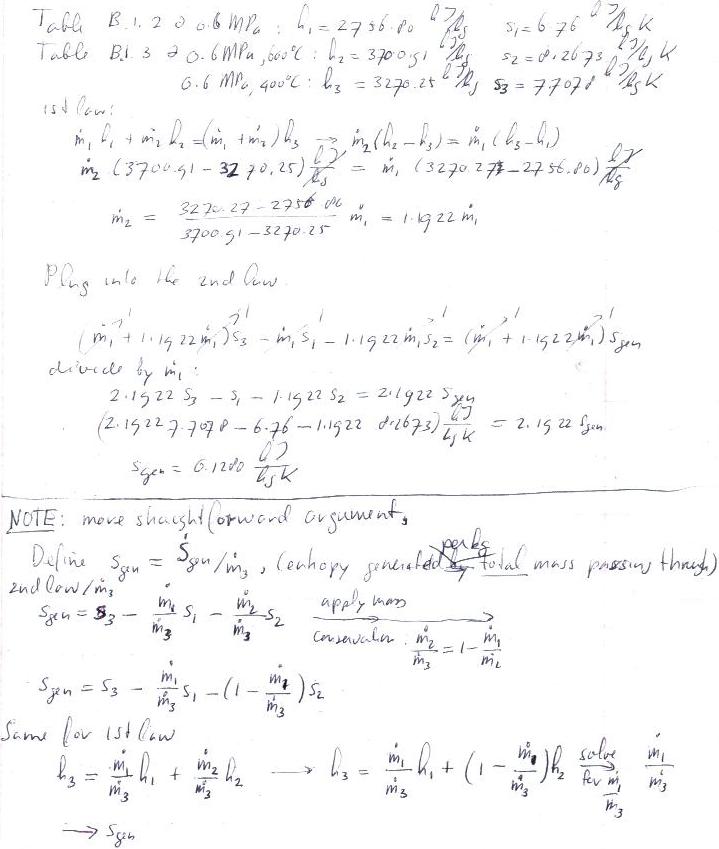 Table B.1.2 @ 0.6 MPa : h₁ = 2756.80 kJ/kg s₁ = 6.76 kJ/kg K
Table B.1.3 @ 0.6 MPa, 600°C : h₂ = 3700.91 kJ/kg s₂ = 8.2673 kJ/kg K
0.6 MPa, 400°C : h₃ = 3270.25 kJ/kg s₃ = 7.7078 kJ/kg K
1st law:
ṁ₁ h₁ + ṁ₂ h₂ = (ṁ₁ + ṁ₂) h₃ → ṁ₂ (h₂ - h₃) = ṁ₁ (h₃ - h₁)
ṁ₂ (3700.91 - 3270.25) kJ/kg = ṁ₁ (3270.27 - 2756.80) kJ/kg
ṁ₂ = (3270.27 - 2756.80)/(3700.91 - 3270.25) ṁ₁ = 1.1922 ṁ₁
Plug into the 2nd law.
(ṁ₁ + 1.1922 ṁ₁) s₃ - ṁ₁ s₁ - 1.1922 ṁ₁ s₂ = (ṁ₁ + 1.1922 ṁ₁) sgen
divide by ṁ₁ :
2.1922 s₃ - s₁ - 1.1922 s₂ = 2.1922 sgen
(2.1922 7.7078 - 6.76 - 1.1922 8.2673) kJ/kg K = 2.1922 sgen
sgen = 0.1280 kJ/kg K
NOTE: more straightforward argument,
Define sgen = Ṡgen/ṁ₃ , (entropy generated per kg total mass passing through)
2nd law/ṁ₃
sgen = s₃ - ṁ₁/ṁ₃ s₁ - ṁ₂/ṁ₃ s₂ apply mass conservation → ṁ₂/ṁ₃ = 1 - ṁ₁/ṁ₂
sgen = s₃ - ṁ₁/ṁ₃ s₁ - (1 - ṁ₁/ṁ₃) s₂
Same for 1st law
h₃ = ṁ₁/ṁ₃ h₁ + ṁ₂/ṁ₃ h₂ → h₃ = ṁ₁/ṁ₃ h₁ + (1 - ṁ₁/ṁ₃) h₂ solve for ṁ₁/ṁ₃ → ṁ₁/ṁ₃
→ sgen